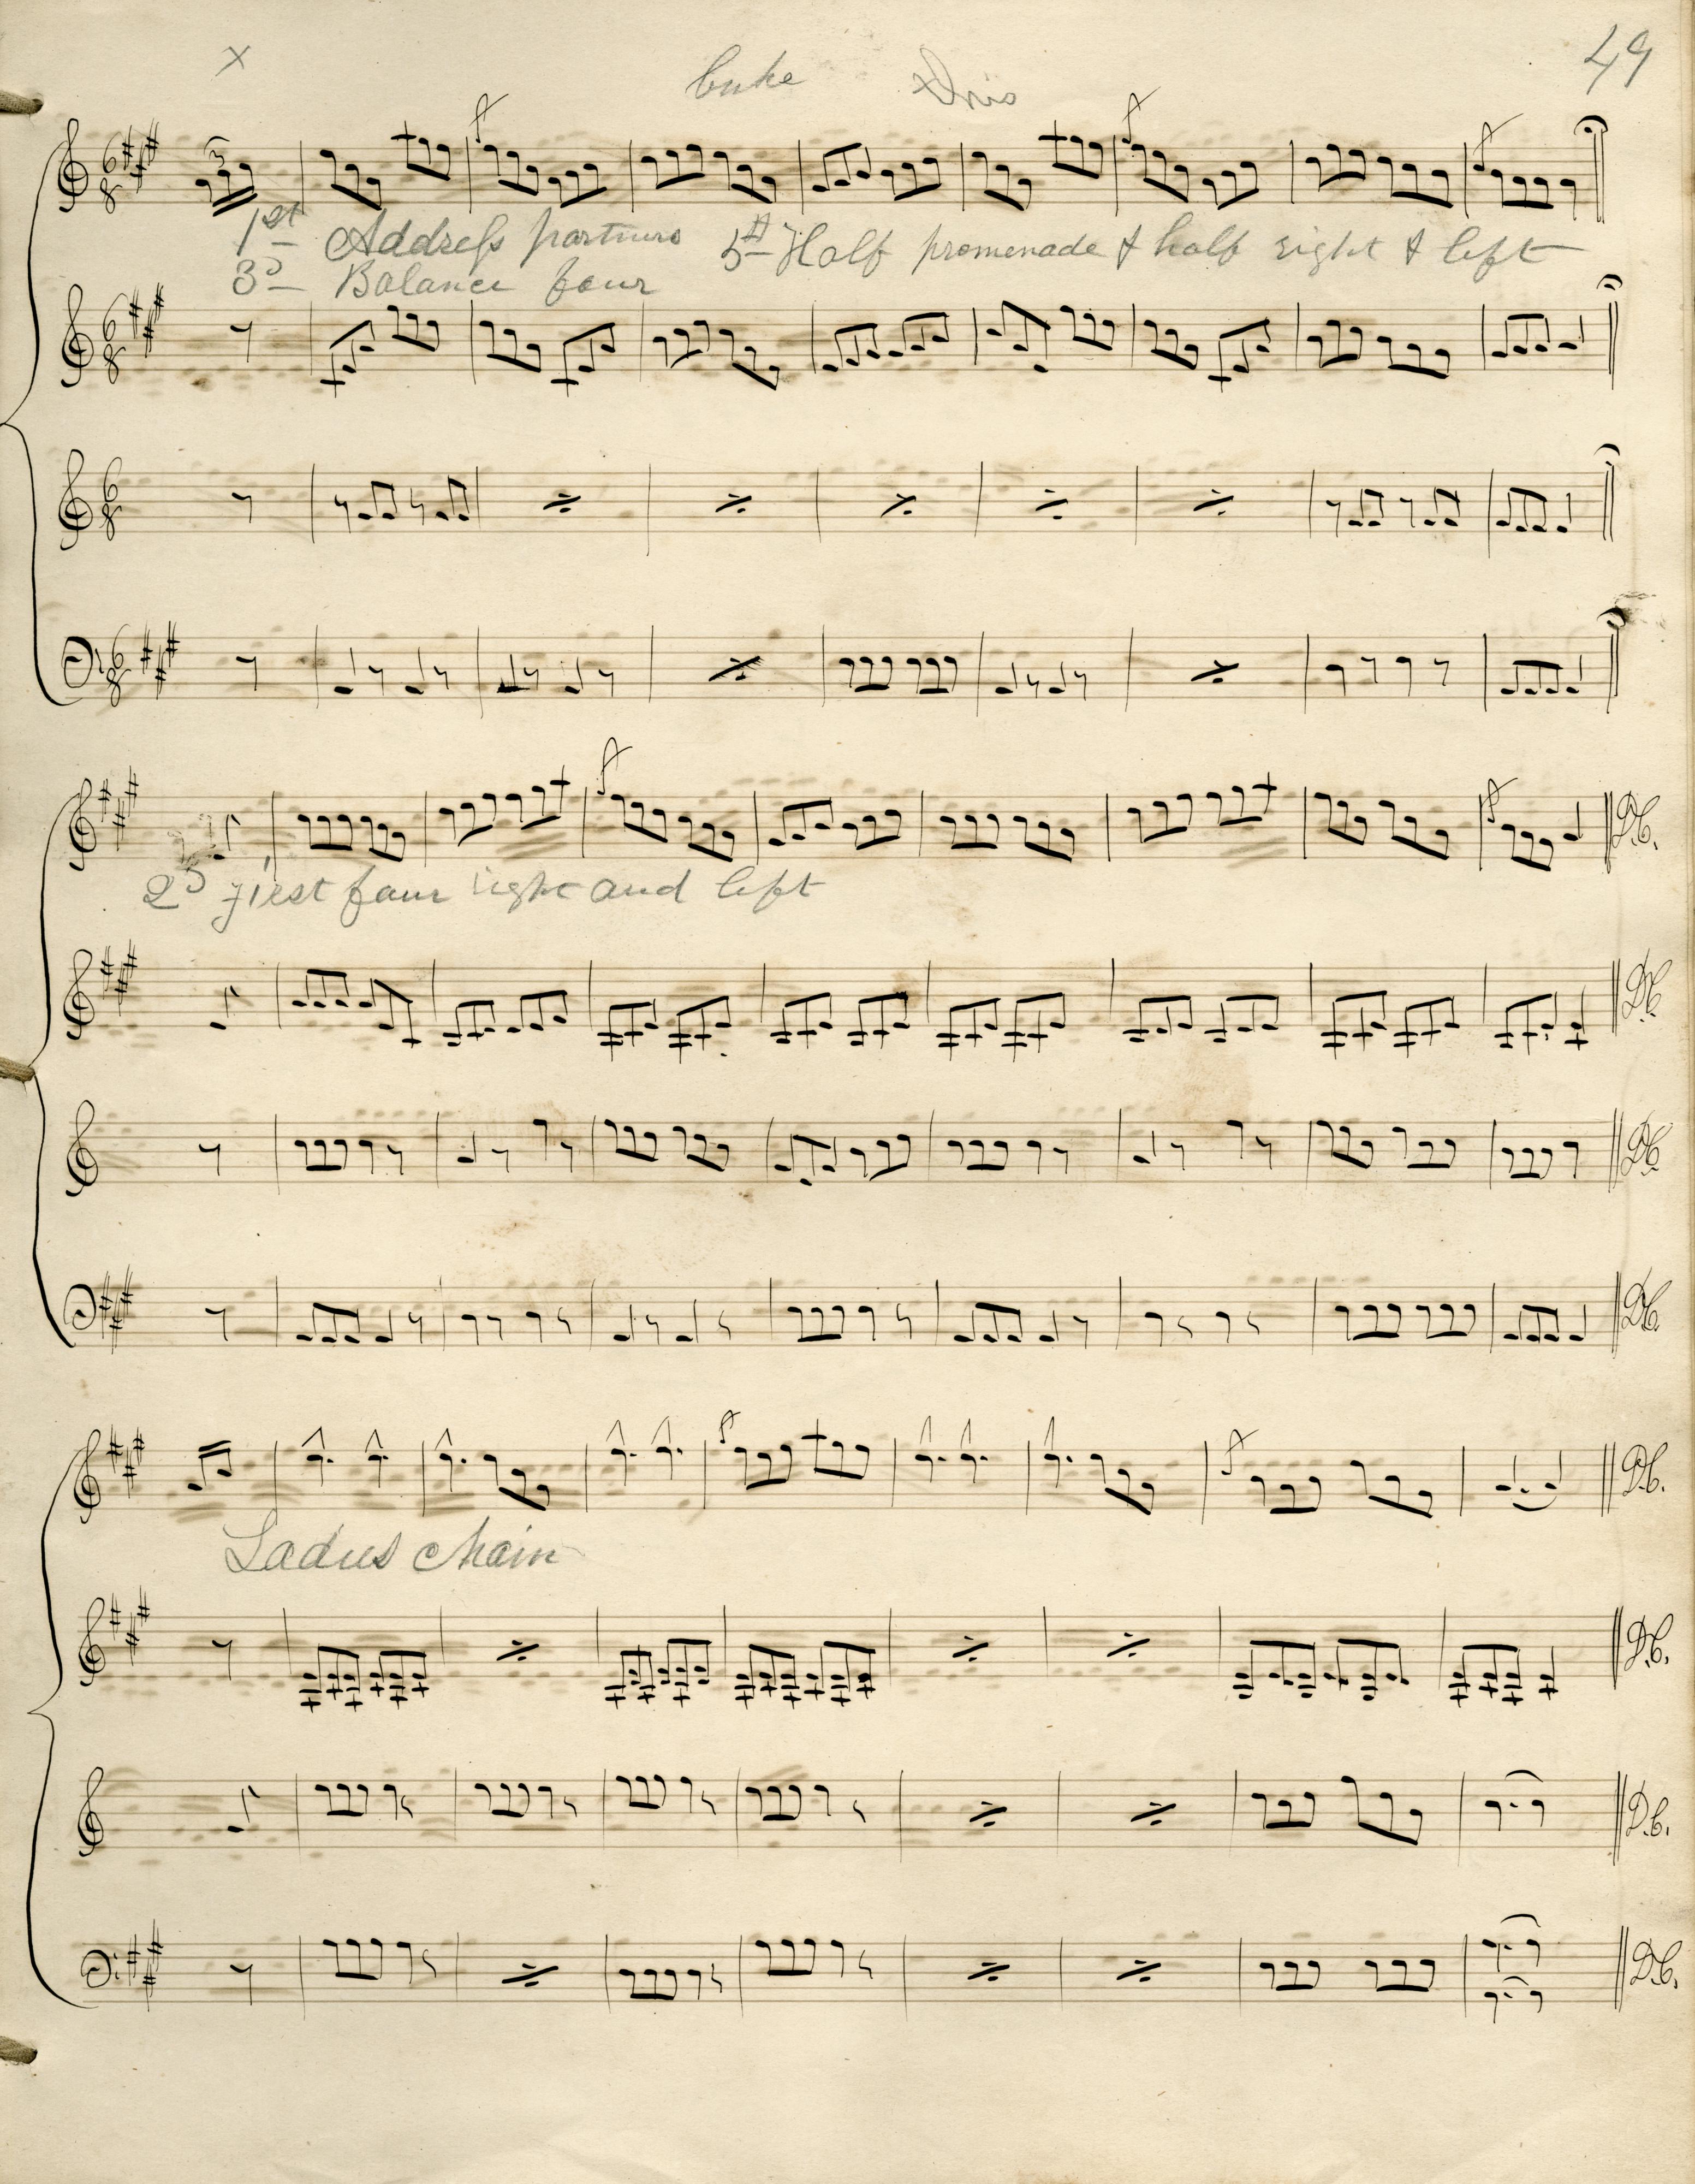 x
49
1st Addreſs partners 5th Half promenade & half right & left
3d Balance four
3
6
8
6
8
6
8
6
8
D.C.
2d first four right and left
D.C.
D.C.
D.C.
D.C.
Ladies chain
D.C.
D.C.
D.C.